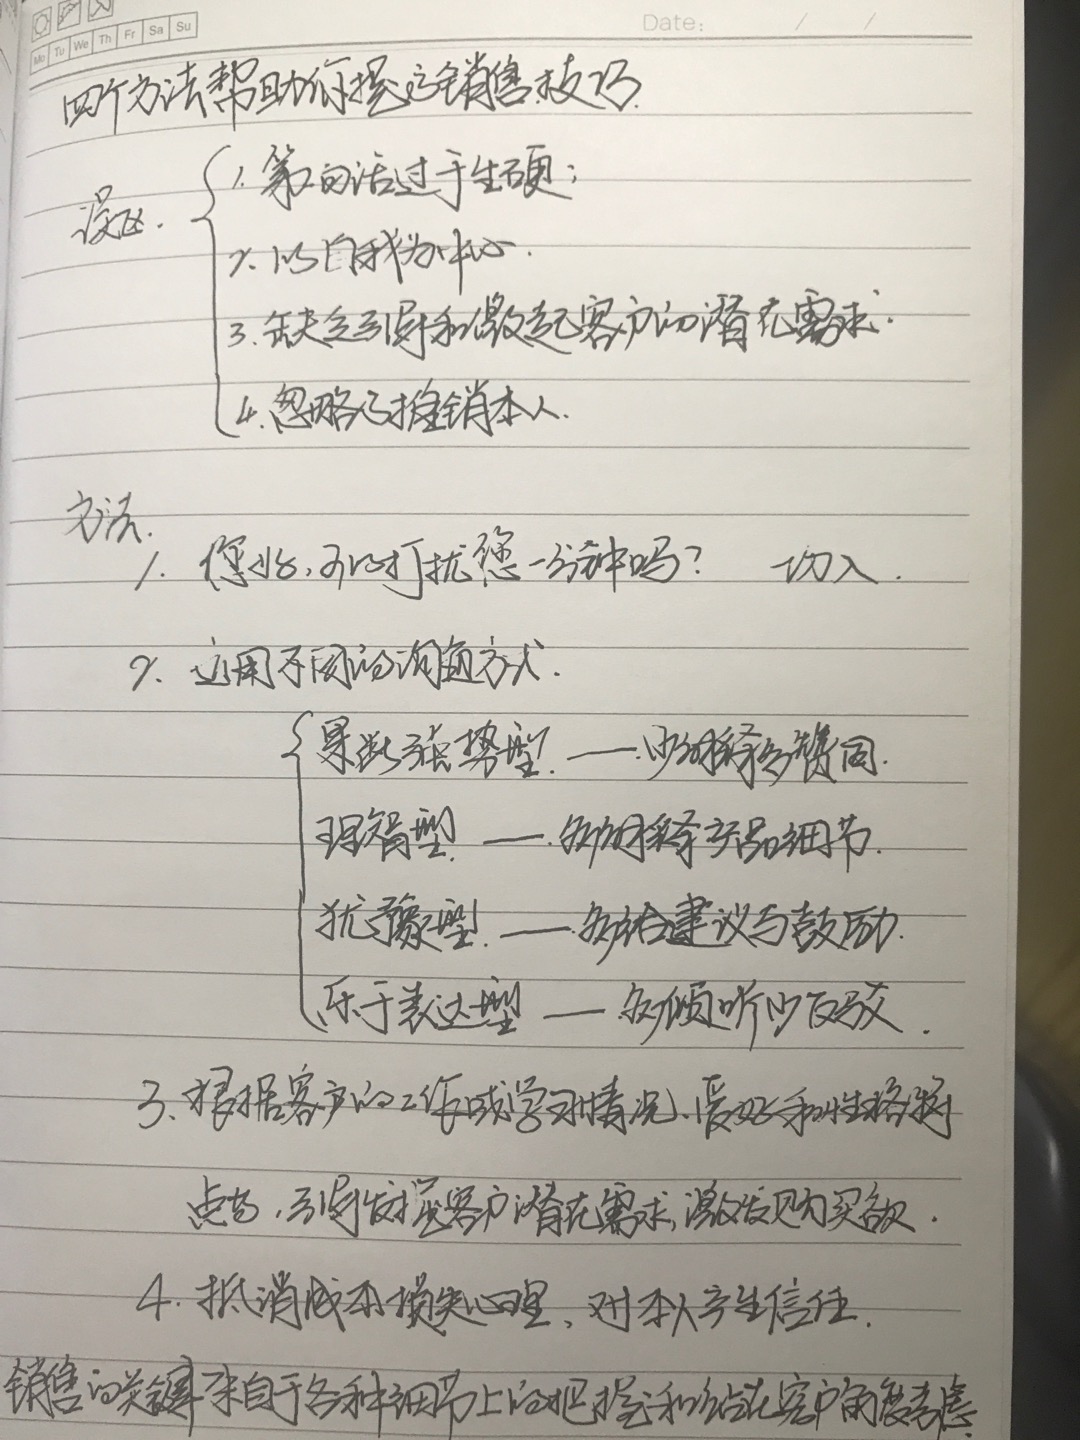 Mo Tu We Th Fr Sa Su
Date: / /
四个方法帮助你提高销售技巧
误区.
1. 第一句话过于生硬；
2. 以自我为中心.
3. 缺乏引导和激起客户的潜在需求.
4. 忽略了推销本人.
方法.
1. 您好，可以打扰您一分钟吗？ 切入.
2. 运用不同的沟通方式.
果断强势型. —— 少解释多赞同.
理智型. —— 多解释产品细节.
犹豫型. —— 多给建议与鼓励.
乐于表达型 —— 多倾听少反驳.
3. 根据客户的工作或学习情况、爱好和性格特
点等，引导发掘客户潜在需求，激发购买欲.
4. 抵消成本损失心理，对本人产生信任.
销售的关键来自于各种细节上的把握和站在客户角度考虑.